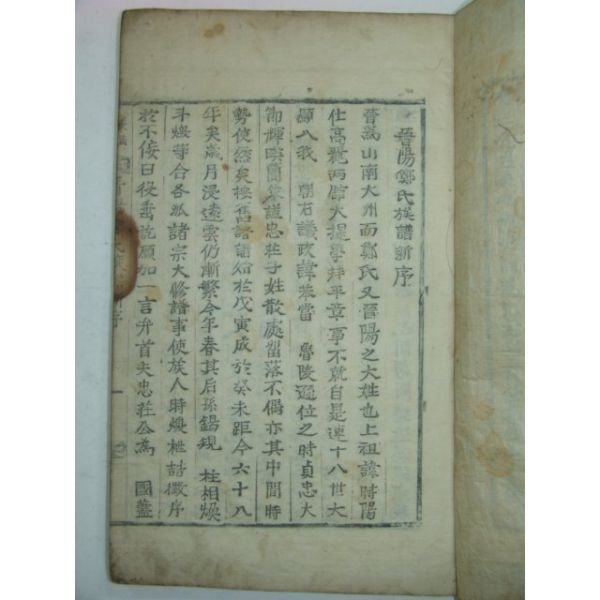 晉陽鄭氏族譜新序
晉爲山南大州而鄭氏又晉陽之大姓也上祖諱時陽
仕高麗丙大提學拜平章事不就自是連十八世大
顯入我 朝右議政諱苯當 魯陵遜位之時貞忠大
節輝暎簡策謚忠莊子姓散處留落不偶亦其中間時
勢使然矣按舊譜譜始於戊寅成於癸未距今六十八
年矣歲月浸遠雲仍漸繁今年春其后孫錫 柱相煥
斗煥等合各派諸宗大修譜事使族人時煥徵序
於不佞曰役垂訖願加一言弁首夫忠莊公爲 國藎